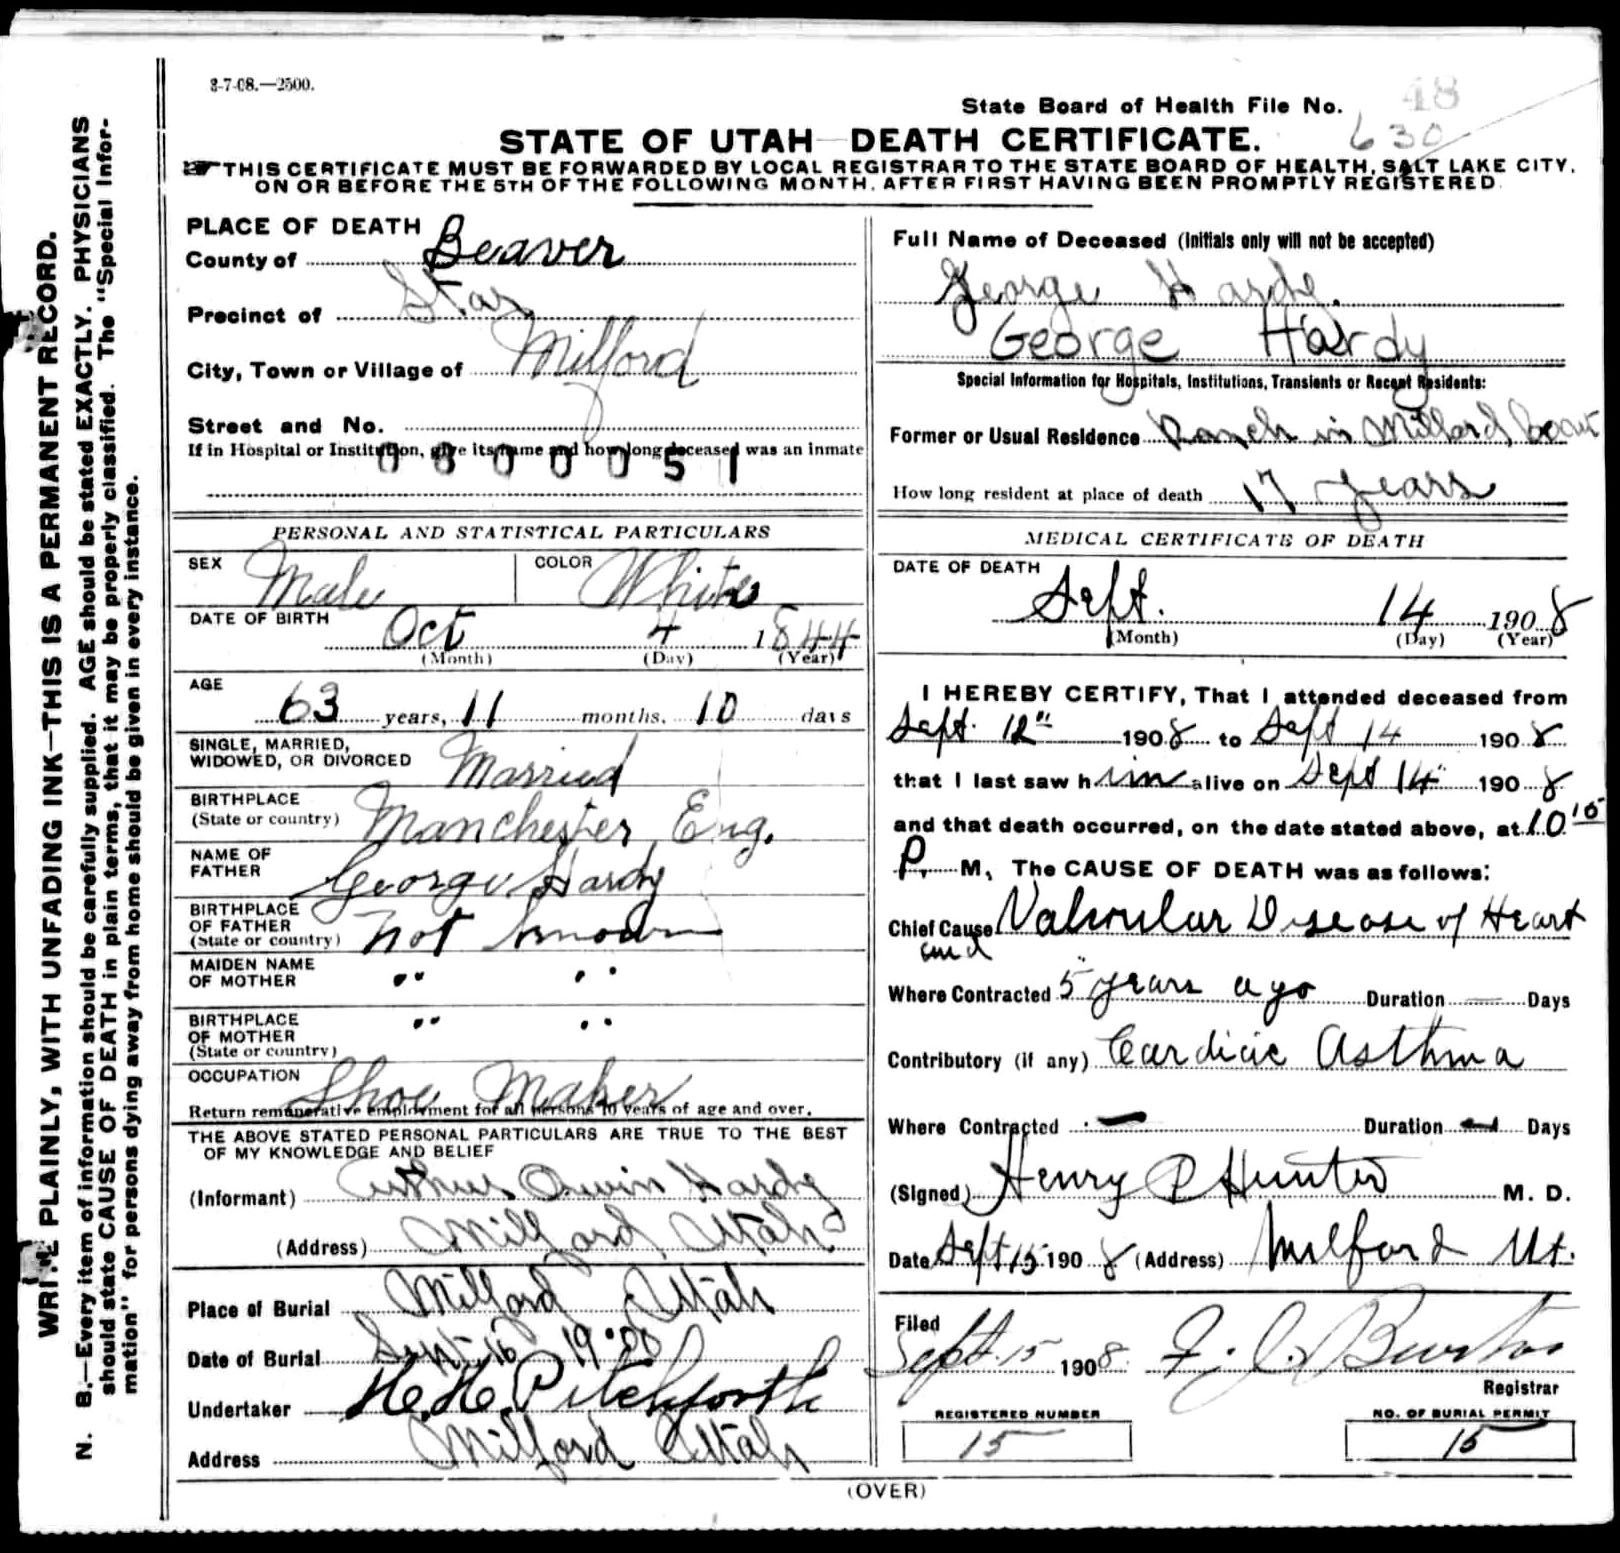 3-7-08.—2500.
State Board of Health File No. 48
630
STATE OF UTAH—DEATH CERTIFICATE.
THIS CERTIFICATE MUST BE FORWARDED BY LOCAL REGISTRAR TO THE STATE BOARD OF HEALTH, SALT LAKE CITY,
ON OR BEFORE THE 5TH OF THE FOLLOWING MONTH, AFTER FIRST HAVING BEEN PROMPTLY REGISTERED.
WRITE PLAINLY, WITH UNFADING INK—THIS IS A PERMANENT RECORD.
N. B.—Every item of information should be carefully supplied. AGE should be stated EXACTLY. PHYSICIANS
should state CAUSE OF DEATH in plain terms, that it may be properly classified. The "Special Infor-
mation" for persons dying away from home should be given in every instance.
PLACE OF DEATH
County of Beaver
Precinct of Star
City, Town or Village of Milford
Street and No.
If in Hospital or Institution, give its name and how long deceased was an inmate
0800051
PERSONAL AND STATISTICAL PARTICULARS
SEX Male COLOR White
DATE OF BIRTH
Oct 4 1844
(Month) (Day) (Year)
AGE
63 years, 11 months, 10 days
SINGLE, MARRIED,
WIDOWED, OR DIVORCED Married
BIRTHPLACE
(State or country) Manchester, Eng.
NAME OF
FATHER George Hardy
BIRTHPLACE
OF FATHER
(State or country) not known
MAIDEN NAME
OF MOTHER " "
BIRTHPLACE
OF MOTHER
(State or country) " "
OCCUPATION Shoe Maker
Return remunerative employment for all persons 10 years of age and over.
THE ABOVE STATED PERSONAL PARTICULARS ARE TRUE TO THE BEST
OF MY KNOWLEDGE AND BELIEF
(Informant) Arthur Owin Hardy
(Address) Milford Utah
Place of Burial Milford Utah
Date of Burial Sept 16 1908
Undertaker H. H. Pitchforth
Address Milford Utah
Full Name of Deceased (Initials only will not be accepted)
George Hardy.
George Hardy
Special Information for Hospitals, Institutions, Transients or Recent Residents:
Former or Usual Residence Ranch in Millard, Count
How long resident at place of death 17 years
MEDICAL CERTIFICATE OF DEATH
DATE OF DEATH
Sept. 14 1908
(Month) (Day) (Year)
I HEREBY CERTIFY, That I attended deceased from
Sept. 12" 1908 to Sept 14 1908
that I last saw him alive on Sept 14" 1908
and that death occurred, on the date stated above, at 10 15
P. M. The CAUSE OF DEATH was as follows:
Chief Cause Valvular Disease of Heart
and
Where Contracted 5 years ago Duration — Days
Contributory (if any) Cardiac Asthma
Where Contracted — Duration — Days
(Signed) Henry P Hunter M. D.
Date Sept 15 1908 (Address) Milford Ut.
Filed
Sept. 15 1908
Registrar
REGISTERED NUMBER
15
NO. OF BURIAL PERMIT
15
(OVER)